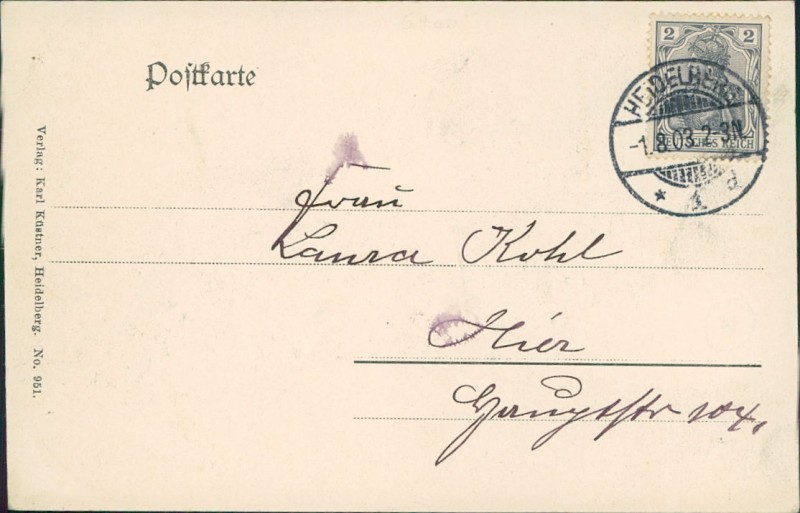 Postkarte
2 2
DEUTSCHES REICH
HEIDELBERG
-1.8.03.2-3N.
* 1. d
Frau
Laura Kohl
Hier
Hauptstr 104.
Verlag: Karl Küstner, Heidelberg. No. 951.